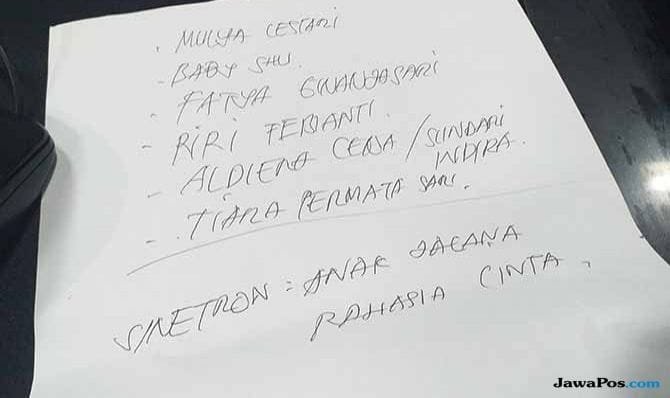 . MULYA LESTARI
- BABY SHU.
- FATYA GINANJASARI
- RIRI FEBIANTI.
- ALDIENA CENA / SUNDARI
INDIRA.
- TIARA PERMATA SARI.
SINETRON = ANAK JALANAN
RAHASIA CINTA,
JawaPos.com